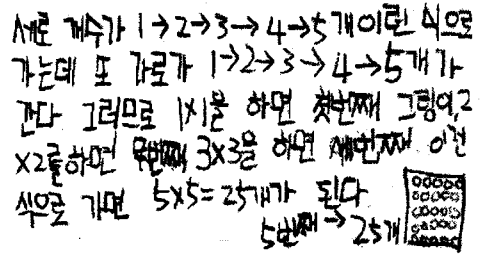 세로 개수가 1→2→3→4→5개 이런 식으로
가는데 또 가로가 1→2→3→4→5개가
간다 그러므로 1×1을 하면 첫번째 그림이, 2
×2를 하면 두번째 3×3을 하면 세번째 이런
식으로 가면 5×5=25개가 된다
5번째→25개